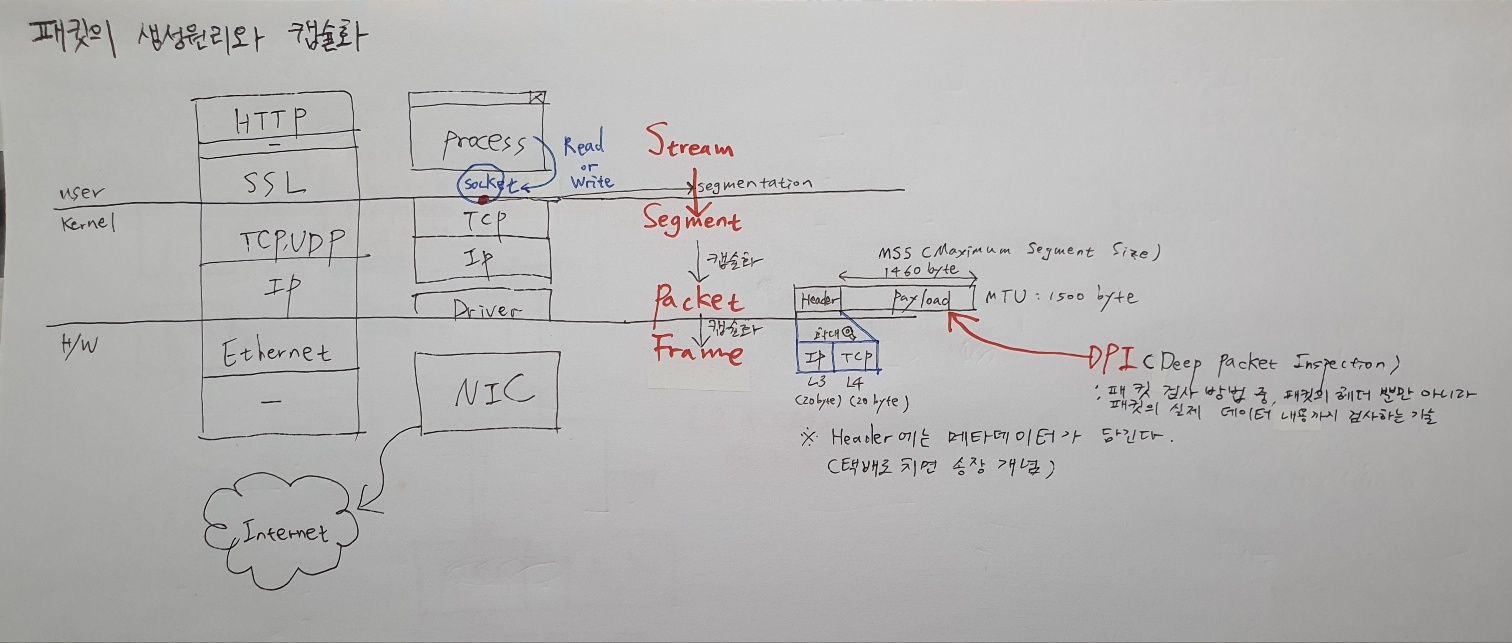 패킷의 생성원리와 캡슐화
HTTP
-
SSL
user
Kernel
TCP,UDP
IP
H/W
Ethernet
-
Internet
process
socket
Read
or
Write
TCP
IP
Driver
NIC
Stream
segmentation
Segment
캡슐화
Packet
캡슐화
Frame
MSS (Maximum Segment Size)
1460 byte
Header
Payload
MTU : 1500 byte
확대
IP
TCP
L3 L4
(20byte) (20 byte)
DPI (Deep Packet Inspection)
: 패킷 검사 방법 중, 패킷의 헤더 뿐만 아니라
패킷의 실제 데이터 내용까지 검사하는 기술
※ Header에는 메타데이터가 담긴다.
(택배로 치면 송장 개념)